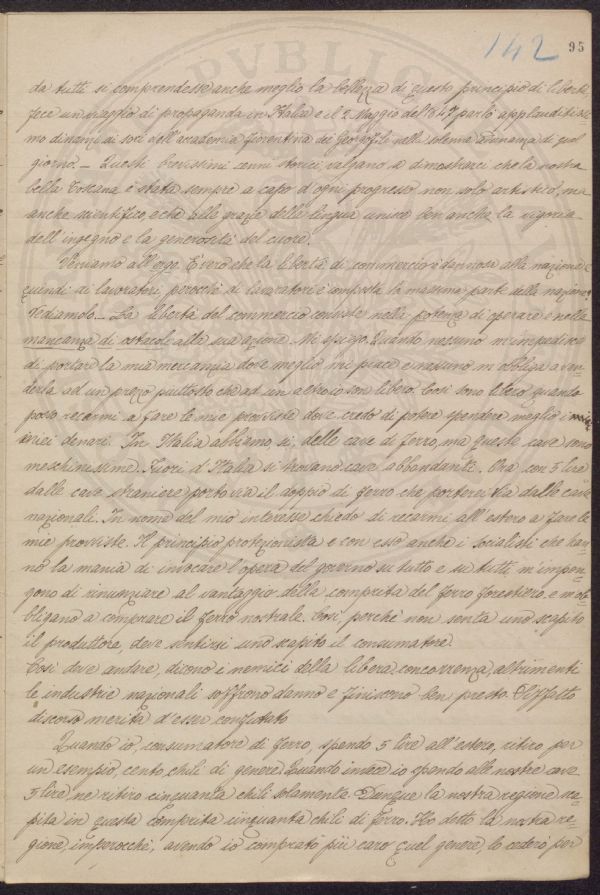 142 95
da tutti si comprendesse anche meglio la bellezza di questo principio di libertà
fece un viaggio di propaganda in Italia e il 2 Maggio del 1847 parlò applauditissi
mo dinanzi ai soci dell'accademia fiorentina dei Georgofili nella solenne adunanza di quel
giorno. — Questi brevissimi cenni storici valgano a dimostrarci che la nostra
bella Toscana è stata sempre a capo d'ogni progresso non solo artistico, ma
anche scientifico e che alle grazie della lingua unisce ben anche la vigoria
dell'ingegno e la generosità del cuore.
Veniamo all'ergo. È vero che la libertà di commercio è dannosa alla nazione e
quindi ai lavoratori, perocchè di lavoratori è composta la massima parte della nazione?
Vediamolo. — La libertà del commercio consiste nella potenza di operare e nella
mancanza di ostacoli alla sua azione. Mi spiego. Quando nessuno m'impedisce
di portare la mia mercanzia dove meglio mi piace e nessuno m'obbliga a ven=
derla ad un prezzo piuttosto che ad un altro io son libero. Così sono libero quando
posso recarmi a fare le mie provviste dove credo di potere spendere meglio i
miei denari. In Italia abbiamo, sì, delle cave di ferro, ma queste cave sono
meschinissime. Fuori d'Italia si trovano cave abbondanti. Ora con 5 lire
dalle cave straniere porto via il doppio di ferro che porterei via dalle cave
nazionali. In nome del mio interesse chiedo di recarmi all'estero a fare le
mie provviste. Il principio protezionista e con esso anche i socialisti che han=
no la mania di invocare l'opera del governo su tutto e su tutti m'impon=
gono di rinunziare al vantaggio della comprita del ferro forestiero e m'ob=
bligano a comprare il ferro nostrale. Così, perchè non senta uno scapito
il produttore, deve sentirsi uno scapito il consumatore.
Così deve andare, dicono i nemici della libera concorrenza, altrimenti
le industrie nazionali soffrono danno e finiscono ben presto. Effatto
discorso merita d'esser confutato
Quando io, consumatore di ferro, spendo 5 lire all'estero, ritiro per
un esempio, cento chili di genere. Quando invece io spendo alle nostre cave
5 lire, ne ritiro cinquanta chili solamente. Dunque la nostra regione sca=
pita in questa comprita cinquanta chili di ferro. Ho detto la nostra re=
gione, imperocchè, avendo io comprato più caro quel genere, lo cederò per